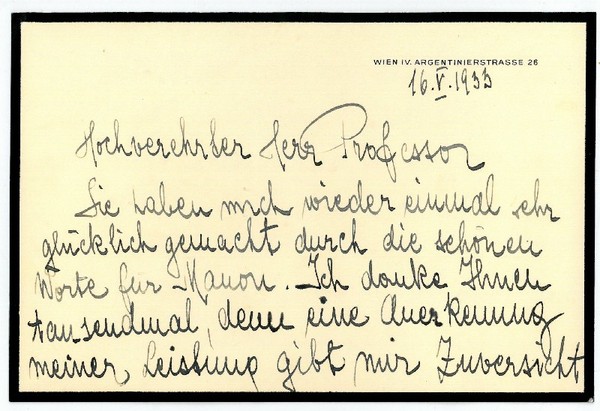 WIEN IV. ARGENTINIERSTRASSE 26
16.V.1933
Hochverehrter Herr Professor
Sie haben mich wieder einmal sehr
glücklich gemacht durch die schönen
Worte für Manon. Ich danke Ihnen
tausendmal, denn eine Anerkennung
meiner Leistung gibt mir Zuversicht